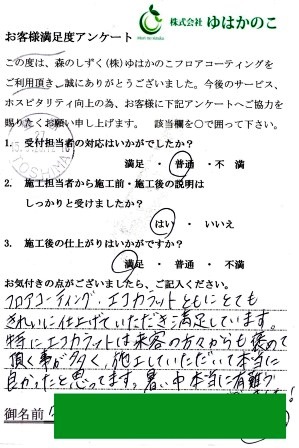 株式会社 ゆはかのこ
お客様満足度アンケート
この度は、森のしずく(株)ゆはかのこフロアコーティングを
ご利用頂き、誠にありがとうございました。今後のサービス、
ホスピタリティ向上の為、お客様に下記アンケートへご協力を
賜りたくお願い申し上げます。 該当欄を○で囲って下さい。
1. 受付担当者の対応はいかがでしたか?
満足 ・ 普通 ・ 不満
2. 施工担当者から施工前・施工後の説明は
しっかりと受けましたか?
はい ・ いいえ
3. 施工後の仕上がりはいかがですか?
満足 ・ 普通 ・ 不満
お気付きの点がございましたら、ご記入ください。
フロアコーティング、エコカラットともにとても
きれいに仕上げていただき満足しています。
特にエコカラットは来客の方々からも褒めて
頂く事が多く、施工していただいて本当に
良かったと思ってます。暑い中本当に有難う
御名前